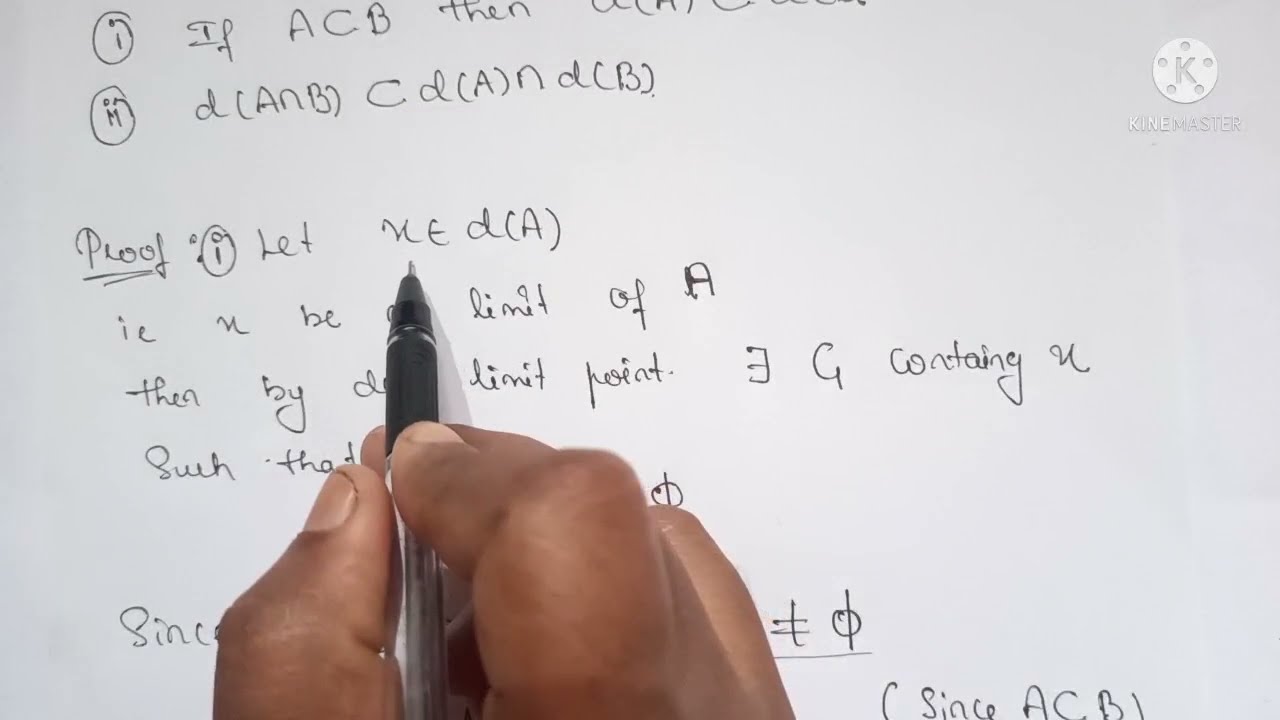 (i) If A⊂B then
(ii) d(A∩B) ⊂ d(A)∩d(B).
KINEMASTER
Proof :(i) Let x∈ d(A)
ie x be limit of A
then by limit point. ∃ G containg x
Such that
ϕ
≠ ϕ
(Since A⊂B)